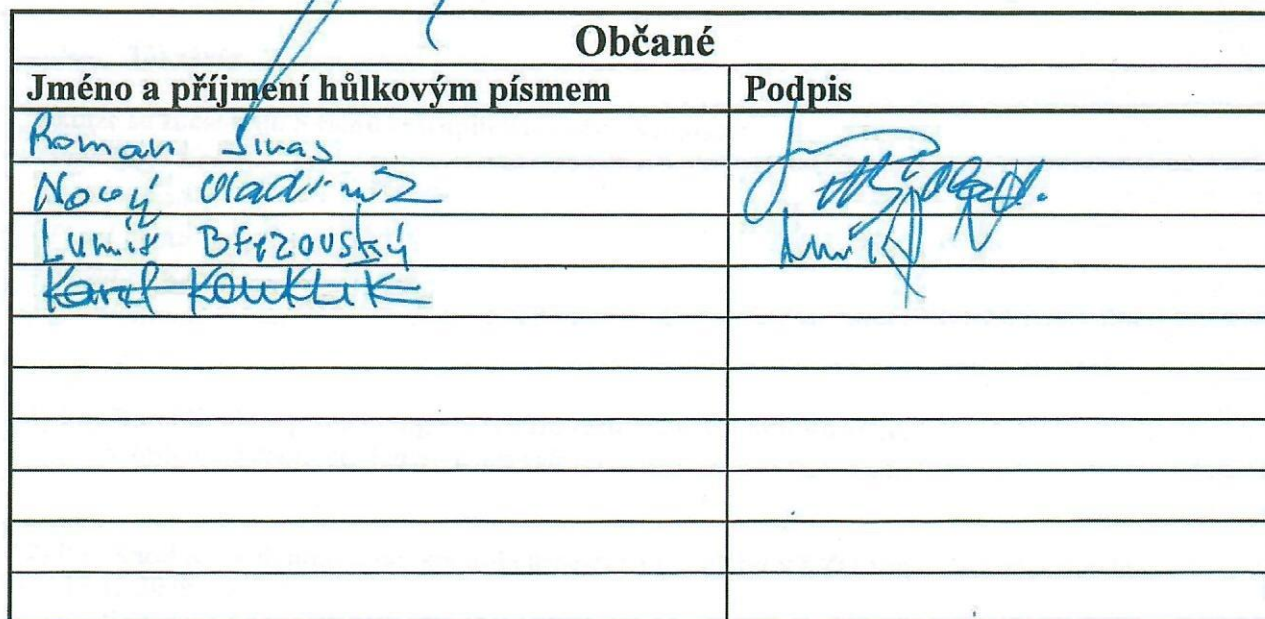 Občané
Jméno a příjmení hůlkovým písmem Podpis
Roman
Nový Vladimír
Lumír Březovský
Karel Kouklik